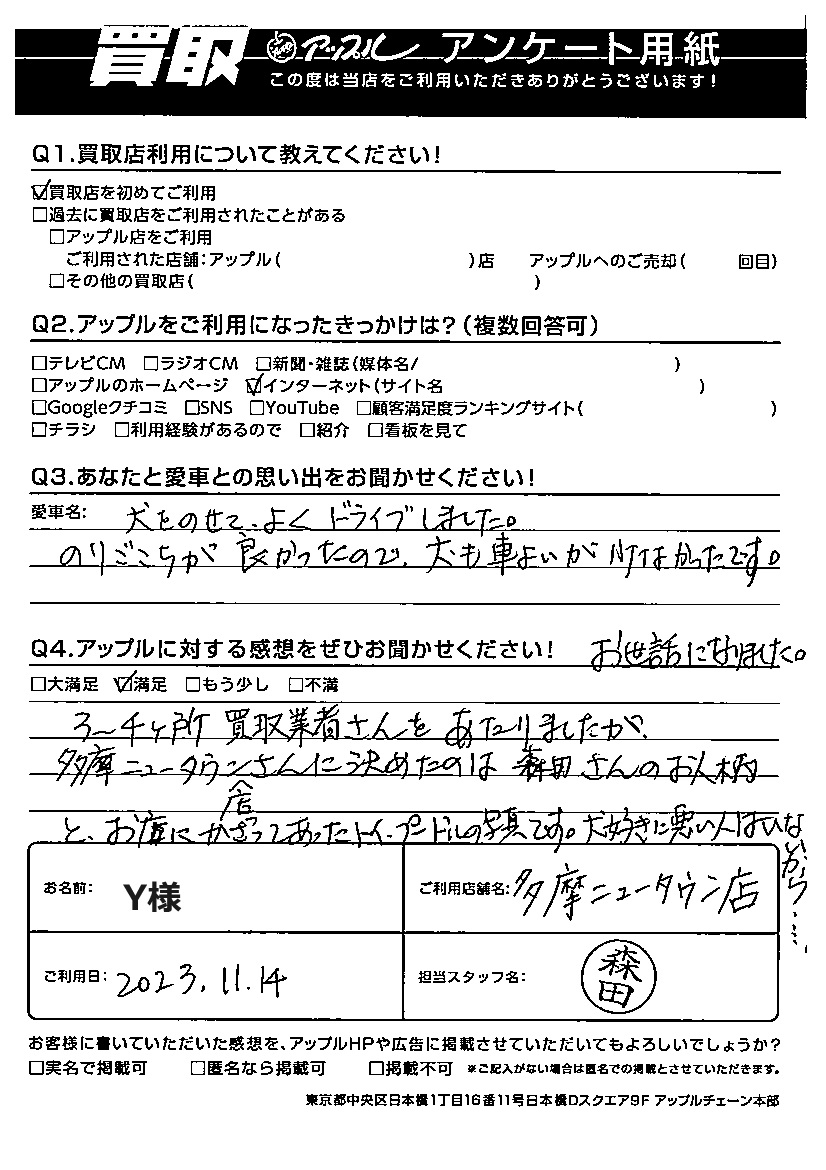 買取 アップル アンケート用紙
この度は当店をご利用いただきありがとうございます！
Q1.買取店利用について教えてください！
☑買取店を初めてご利用
□過去に買取店をご利用されたことがある
□アップル店をご利用
ご利用された店舗：アップル（ ）店 アップルへのご売却（ 回目）
□その他の買取店（ ）
Q2.アップルをご利用になったきっかけは？（複数回答可）
□テレビCM □ラジオCM □新聞・雑誌（媒体名/ ）
□アップルのホームページ ☑インターネット（サイト名 ）
□Googleクチコミ □SNS □YouTube □顧客満足度ランキングサイト（ ）
□チラシ □利用経験があるので □紹介 □看板を見て
Q3.あなたと愛車との思い出をお聞かせください！
愛車名： 犬をのせて、よく ドライブしました。
のりごこちが 良かったので、犬も車よいが なかったです。
Q4.アップルに対する感想をぜひお聞かせください！ お世話になりました。
□大満足 ☑満足 □もう少し □不満
3〜4ヶ所 買取業者さんを あたりましたが、
多摩ニュータウンさんに決めたのは 森田さんのお人柄
と、お店にかざってあったトイ・プードルの写真です。犬好きに悪い人はいないから……
お名前： Y様
ご利用店舗名： 多摩ニュータウン店
ご利用日： 2023.11.14
担当スタッフ名： 森田
お客様に書いていただいた感想を、アップルHPや広告に掲載させていただいてもよろしいでしょうか？
□実名で掲載可 □匿名なら掲載可 □掲載不可 ※ご記入がない場合は匿名での掲載とさせていただきます。
東京都中央区日本橋1丁目16番11号日本橋Dスクエア9F アップルチェーン本部